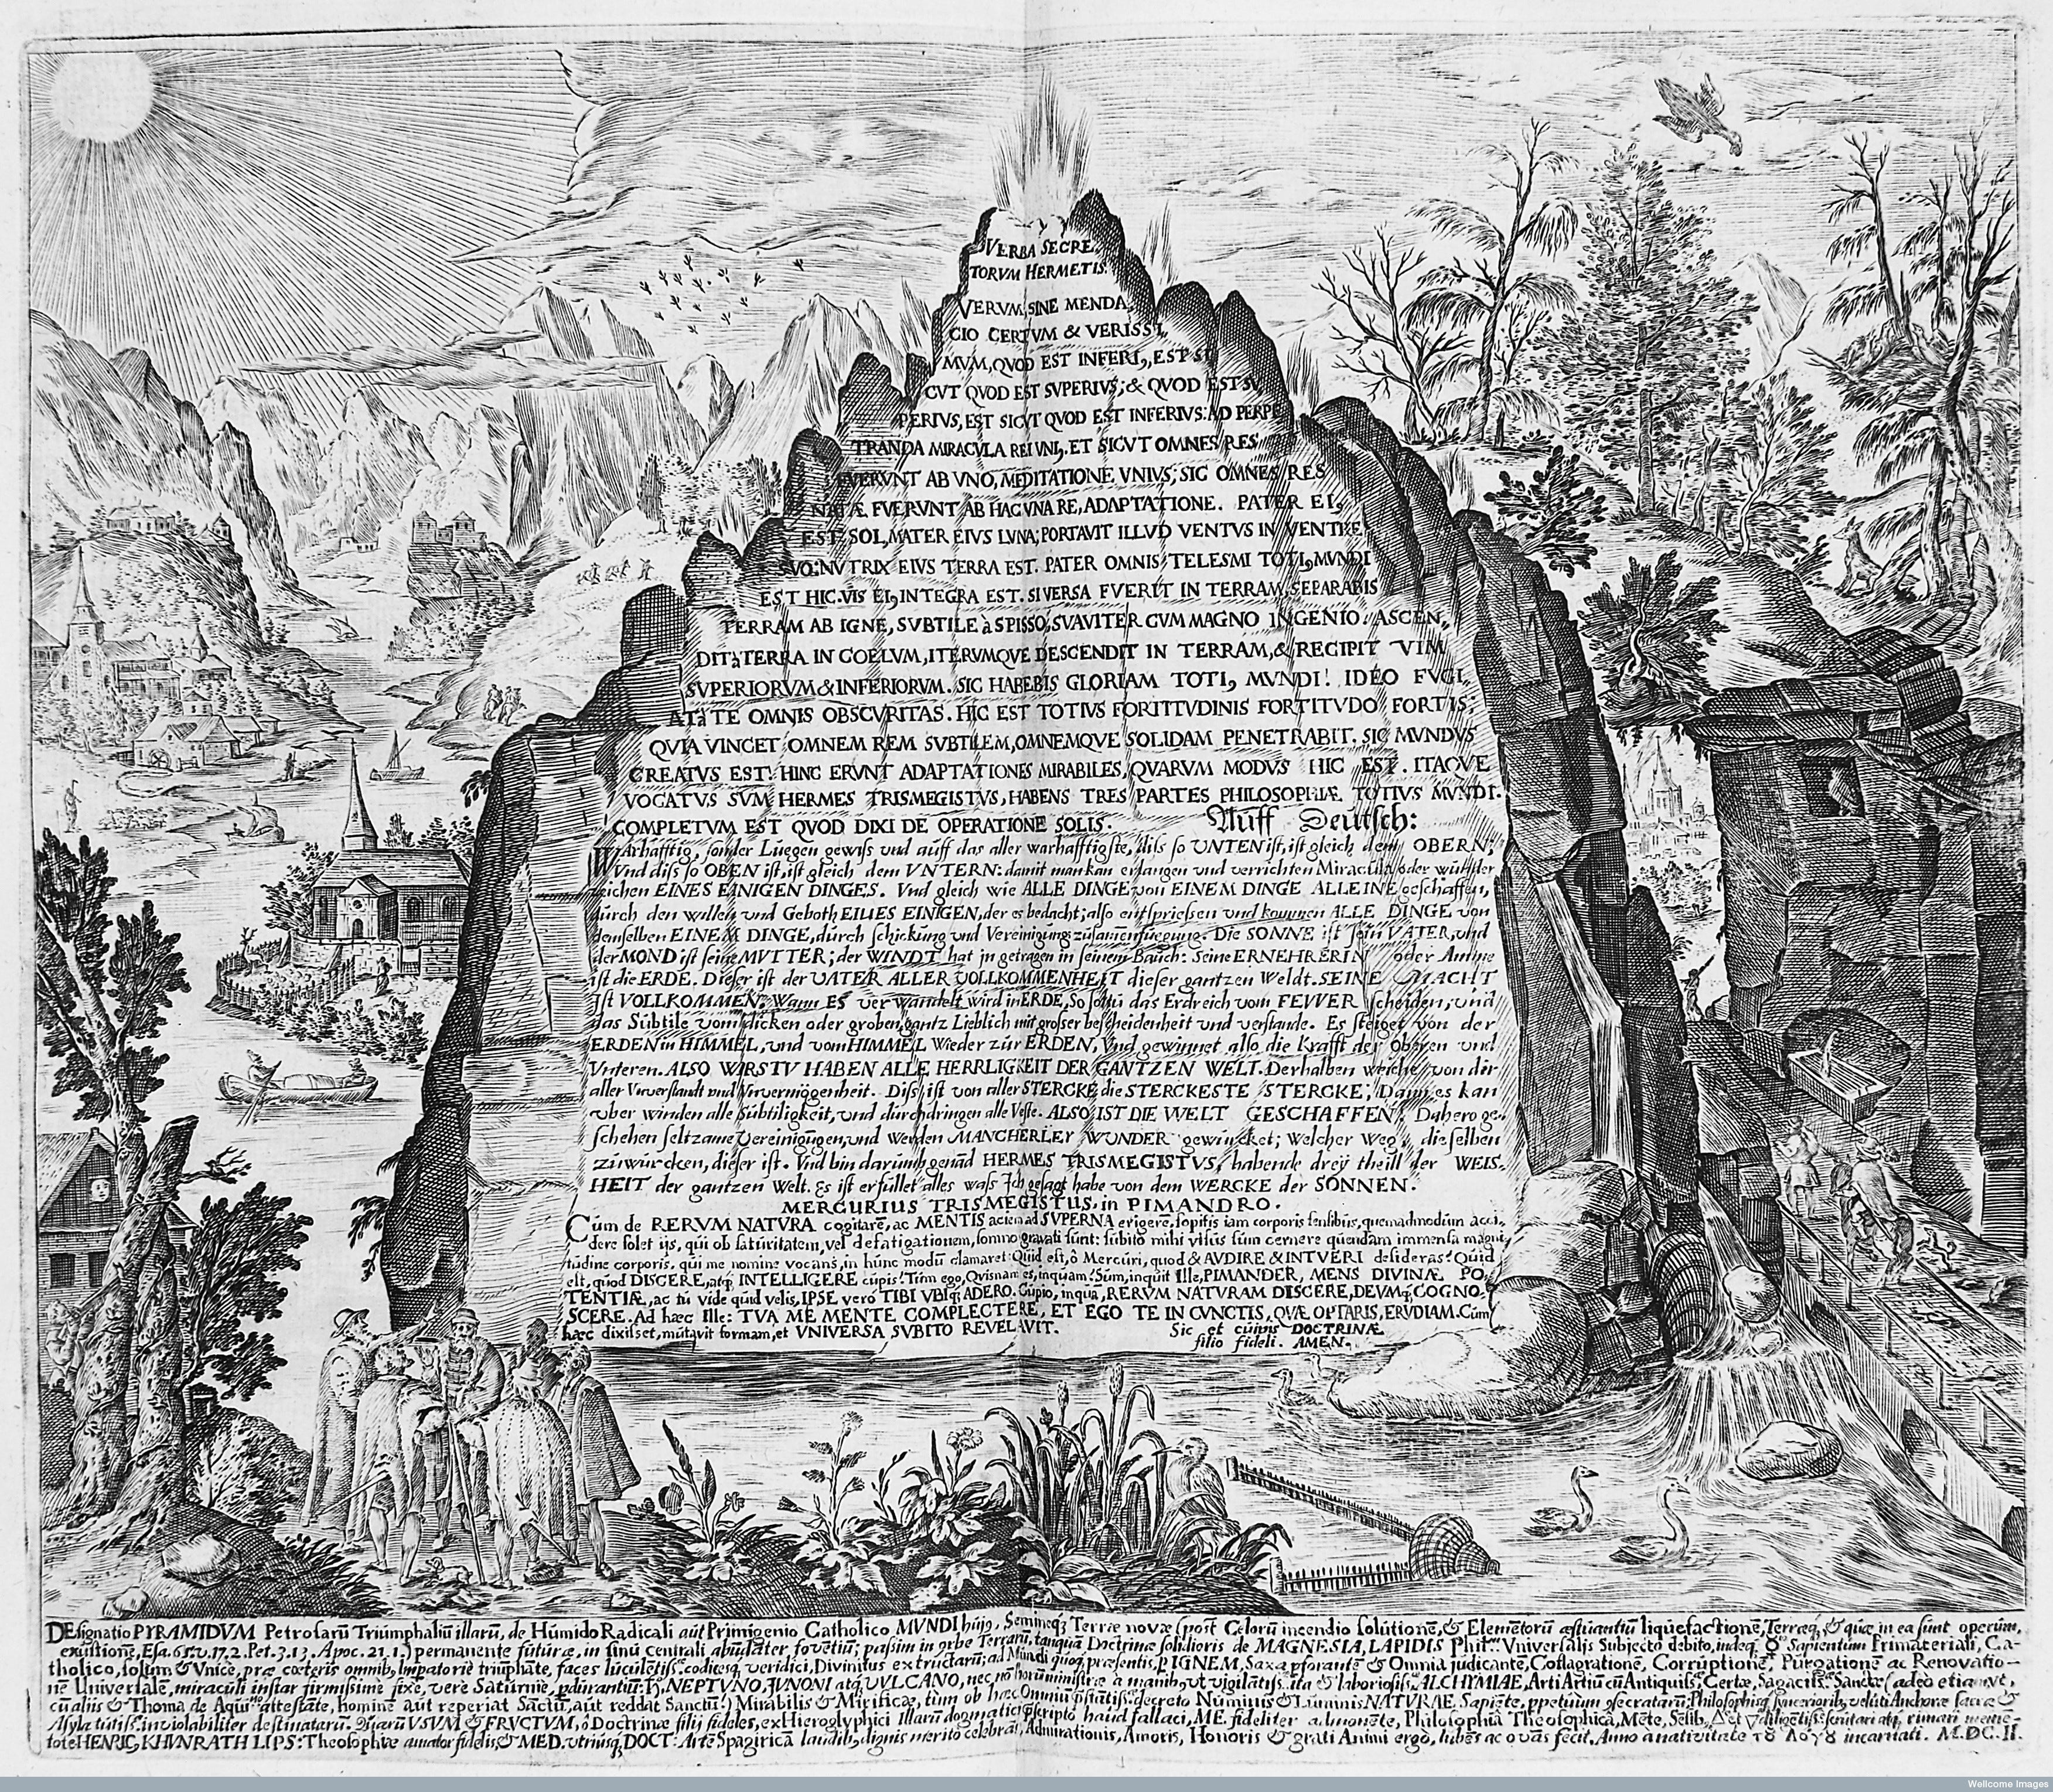 VERBA SECRE
TORVM HERMETIS.
VERVM, SINE MENDA
CIO CERTVM & VERISSI
MVM, QVOD EST INFERI9, EST SI
CVT QVOD EST SUPERIVS; & QVOD EST SV
PERIVS, EST SICVT QVOD EST INFERIVS: AD PERPE
TRANDA MIRACVLA REI UNI9. ET SICVT OMNES RES
FVERVNT AB VNO, MEDITATIONE VNIVS; SIC OMNES RES
NATÆ FVERVNT AB HAC VNA RE, ADAPTATIONE. PATER EI9
EST SOL, MATER EIVS LVNA; PORTAVIT ILLVD VENTVS IN VENTRE
SVO: NVTRIX EIVS TERRA EST. PATER OMNIS TELESMI TOTI9 MVNDI
EST HIC. VIS EI9 INTEGRA EST. SI VERSA FVERIT IN TERRAM, SEPARABIS
TERRAM AB IGNE, SVBTILE à SPISSO, SVAVITER CVM MAGNO INGENIO: ASCEN,
DIT à TERRA IN COELVM, ITERVMQVE DESCENDIT IN TERRAM, & RECIPIT VIM
SVPERIORVM & INFERIORVM. SIC HABEBIS GLORIAM TOTI9 MVNDI! IDEO FVGI,
AT à TE OMNIS OBSCVRITAS. HIC EST TOTIVS FORTITVDINIS FORTITVDO FORTIS;
QVIA VINCET OMNEM REM SVBTILEM, OMNEMQVE SOLIDAM PENETRABIT. SIC MVNDVS
CREATVS EST. HINC ERVNT ADAPTATIONES MIRABILES, QVARVM MODVS HIC EST. ITAQVE
VOCATVS SVM HERMES TRISMEGISTVS, HABENS TRES PARTES PHILOSOPHIÆ TOTIVS MVNDI.
COMPLETVM EST QVOD DIXI DE OPERATIONE SOLIS. Auff Deutsch:
WArhafftig, sonder Luegen gewiss vnd auff das aller warhafftigste, diss so UNTEN ist, ist gleich dem OBERN;
Vnd diss so OBEN ist, ist gleich dem VNTERN: damit man kan erlangen und verrichten Miracula oder wunder
zeichen EINES EINIGEN DINGES. Vnd gleich wie ALLE DINGE von EINEM DINGE ALLEINE geschaffen,
durch den willen vnd Geboth EINES EINIGEN, der es bedacht; also entspriessen vnd kommen ALLE DINGE von
demselben EINEM DINGE, durch schickung vnd Vereinigung zusamenfuegung. Die SONNE ist sein VATER, vnd
der MOND ist seine MVTTER; der WINDT hat jn getragen in seinem Bauch: Seine ERNEHRERIN oder Amme
ist die ERDE. Dieser ist der VATER ALLER VOLLKOMMENHEIT dieser gantzen Weldt. SEINE MACHT
Ist VOLLKOMMEN. Wann ES verwandelt wird in ERDE, So soltu das Erdreich vom FEWER scheiden, und
das Subtile vom dicken oder groben, gantz Lieblich mit grosser bescheidenheit vnd verstande. Es steiget von der
ERDEN in HIMMEL, vnd vom HIMMEL Wieder zur ERDEN, Vnd gewinnet also die krafft der Oberen vnd
Vnteren. ALSO WIRSTV HABEN ALLE HERRLIGKEIT DER GANTZEN WELT. Derhalben weiche von dir
aller Vnverstandt vnd Vnvermögenheit. Diss ist von aller STERCKE die STERCKESTE STERCKE; Dann es kan
vber winden alle Subtiligkeit, vnd durchdringen alle Veste. ALSO IST DIE WELT GESCHAFFEN. Dahero ge,
schehen seltzame Vereinigungen, vnd werden MANCHERLEY WUNDER gewürcket; welcher Weg, dieselben
zuwürcken, dieser ist. Vnd bin darumb genand HERMES TRISMEGISTVS, habende drey theill der WEIS,
HEIT der gantzen Welt. Es ist erfüllet alles wass Ich gesagt habe von dem WERCKE der SONNEN.
MERCURIUS TRISMEGISTUS, in PIMANDRO.
Cum de RERVM NATVRA cogitare, ac MENTIS aciem ad SVPERNA erigere, sopitis iam corporis sensibus, quemadmodum acci,
dere solet ijs, qui ob saturitatem, vel defatigationem, somno gravati sunt: subito mihi visus sum cernere quendam immensa magni
tudine corporis, qui me nomine vocans, in hunc modū clamaret: Quid est, ô Mercuri, quod & AVDIRE & INTVERI desideras? Quid
est, quod DISCERE, atq; INTELLIGERE cupis? Tum ego, Quisnam es, inquam? Sum, inquit Ille, PIMANDER, MENS DIVINÆ PO,
TENTIÆ, ac tu vide quid velis, IPSE vero TIBI UBIQ; ADERO. Cupio, inquā, RERVM NATVRAM DISCERE, DEVMq; COGNO,
SCERE. Ad hæc Ille: TVA ME MENTE COMPLECTERE, ET EGO TE IN CVNCTIS, QVÆ OPTARIS, ERVDIAM. Cum
hæc dixisset, mutavit formam, et UNIVERSA SVBITO REVELAVIT.
Sic et cuius DOCTRINÆ
filio fideli. AMEN.
DEsignatio PYRAMIDVM Petrosarū Triumphaliū illarū, de Húmido Radicali aut Primigenio Catholico MVNDI huj9, Semineq; Terræ novæ (post Celorū incendio solutionē, & Elemētorū æstuantiū liquefactionē, Terræq; & quæ in ea sunt operum,
exustionē, Esa. 65. v. 17. 2. Pet. 3. 13. Apoc. 21. 1.) permanente futuræ, in sinu centrali abūdāter fovētiū; passim in orbe Terrarū, tanquā Doctrinæ solidioris de MAGNESIA, LAPIDIS Philor. Vniversalis Subjecto debito, indeq; ☿io Sapientum Primateriali, Ca-
tholico, solum & Unice, præ cæteris omnib9, Impatoriè triūphāte, faces luculētiss. codicesq; veridici, Divinitus extructarū; ad Mundi quoq; præsentis, p IGNEM, Saxa pforantē & Omnia judicantē, Coflagrationē, Corruptionē, Purgationē ac Renovatio-
nē Universalē, miraculi instar firmissime fixe, vere Saturniæ, pdurantiū: NEPTVNO, JVNONI atq; VVLCANO,
cū aliis & Thoma de Aqui. attestāte, hominē aut reperiat Sāctū, aut reddat Sanctū!) Mirabilis & Mirificæ, tùm ob hæc
Asyla tutiss. inviolabiliter destinatarū. Quarū VSVM & FRVCTVM, ô Doctrinæ filij fideles, ex Hieroglyphici illarū dogmatici pscripto haud fallaci, ME fideliter admonēte, Philosophiā Theosophicā,
tote HENRIC9 KHVNRATH LIPS: Theosophiæ amator fidelis & MED. utriusq; DOCT: Arte Spagirica laudib9 dignis merito celebrāt, Admirationis, Amoris, Honoris & grati Animi ergo, lubēs ac ovās fecit, Anno a nativitate τȣ̃ Λογȣ incarnati. M.DC.II.
Wellcome Images